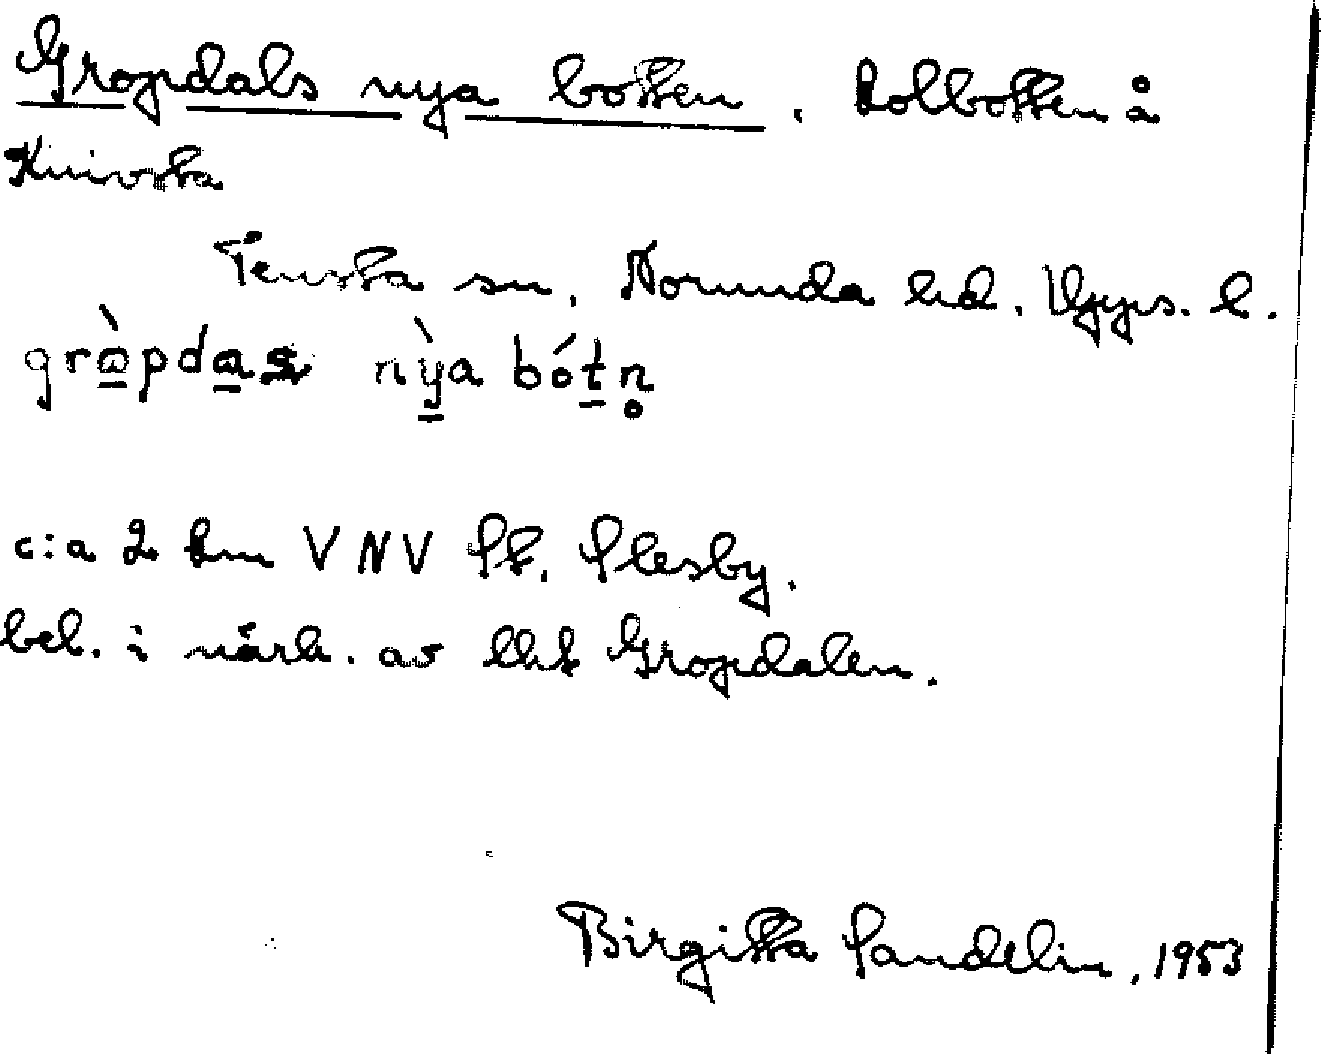 Gropdals nya botten. Kolbotten å
Knivsta
Tensta sn, Norunda hd. Upps. l.
grɷ̀pdas nỳa bótn̥
c:a 2 km VNV St. Plesby.
bel. i närh. av lht Gropdalen.
Birgitta Sandelin, 1953